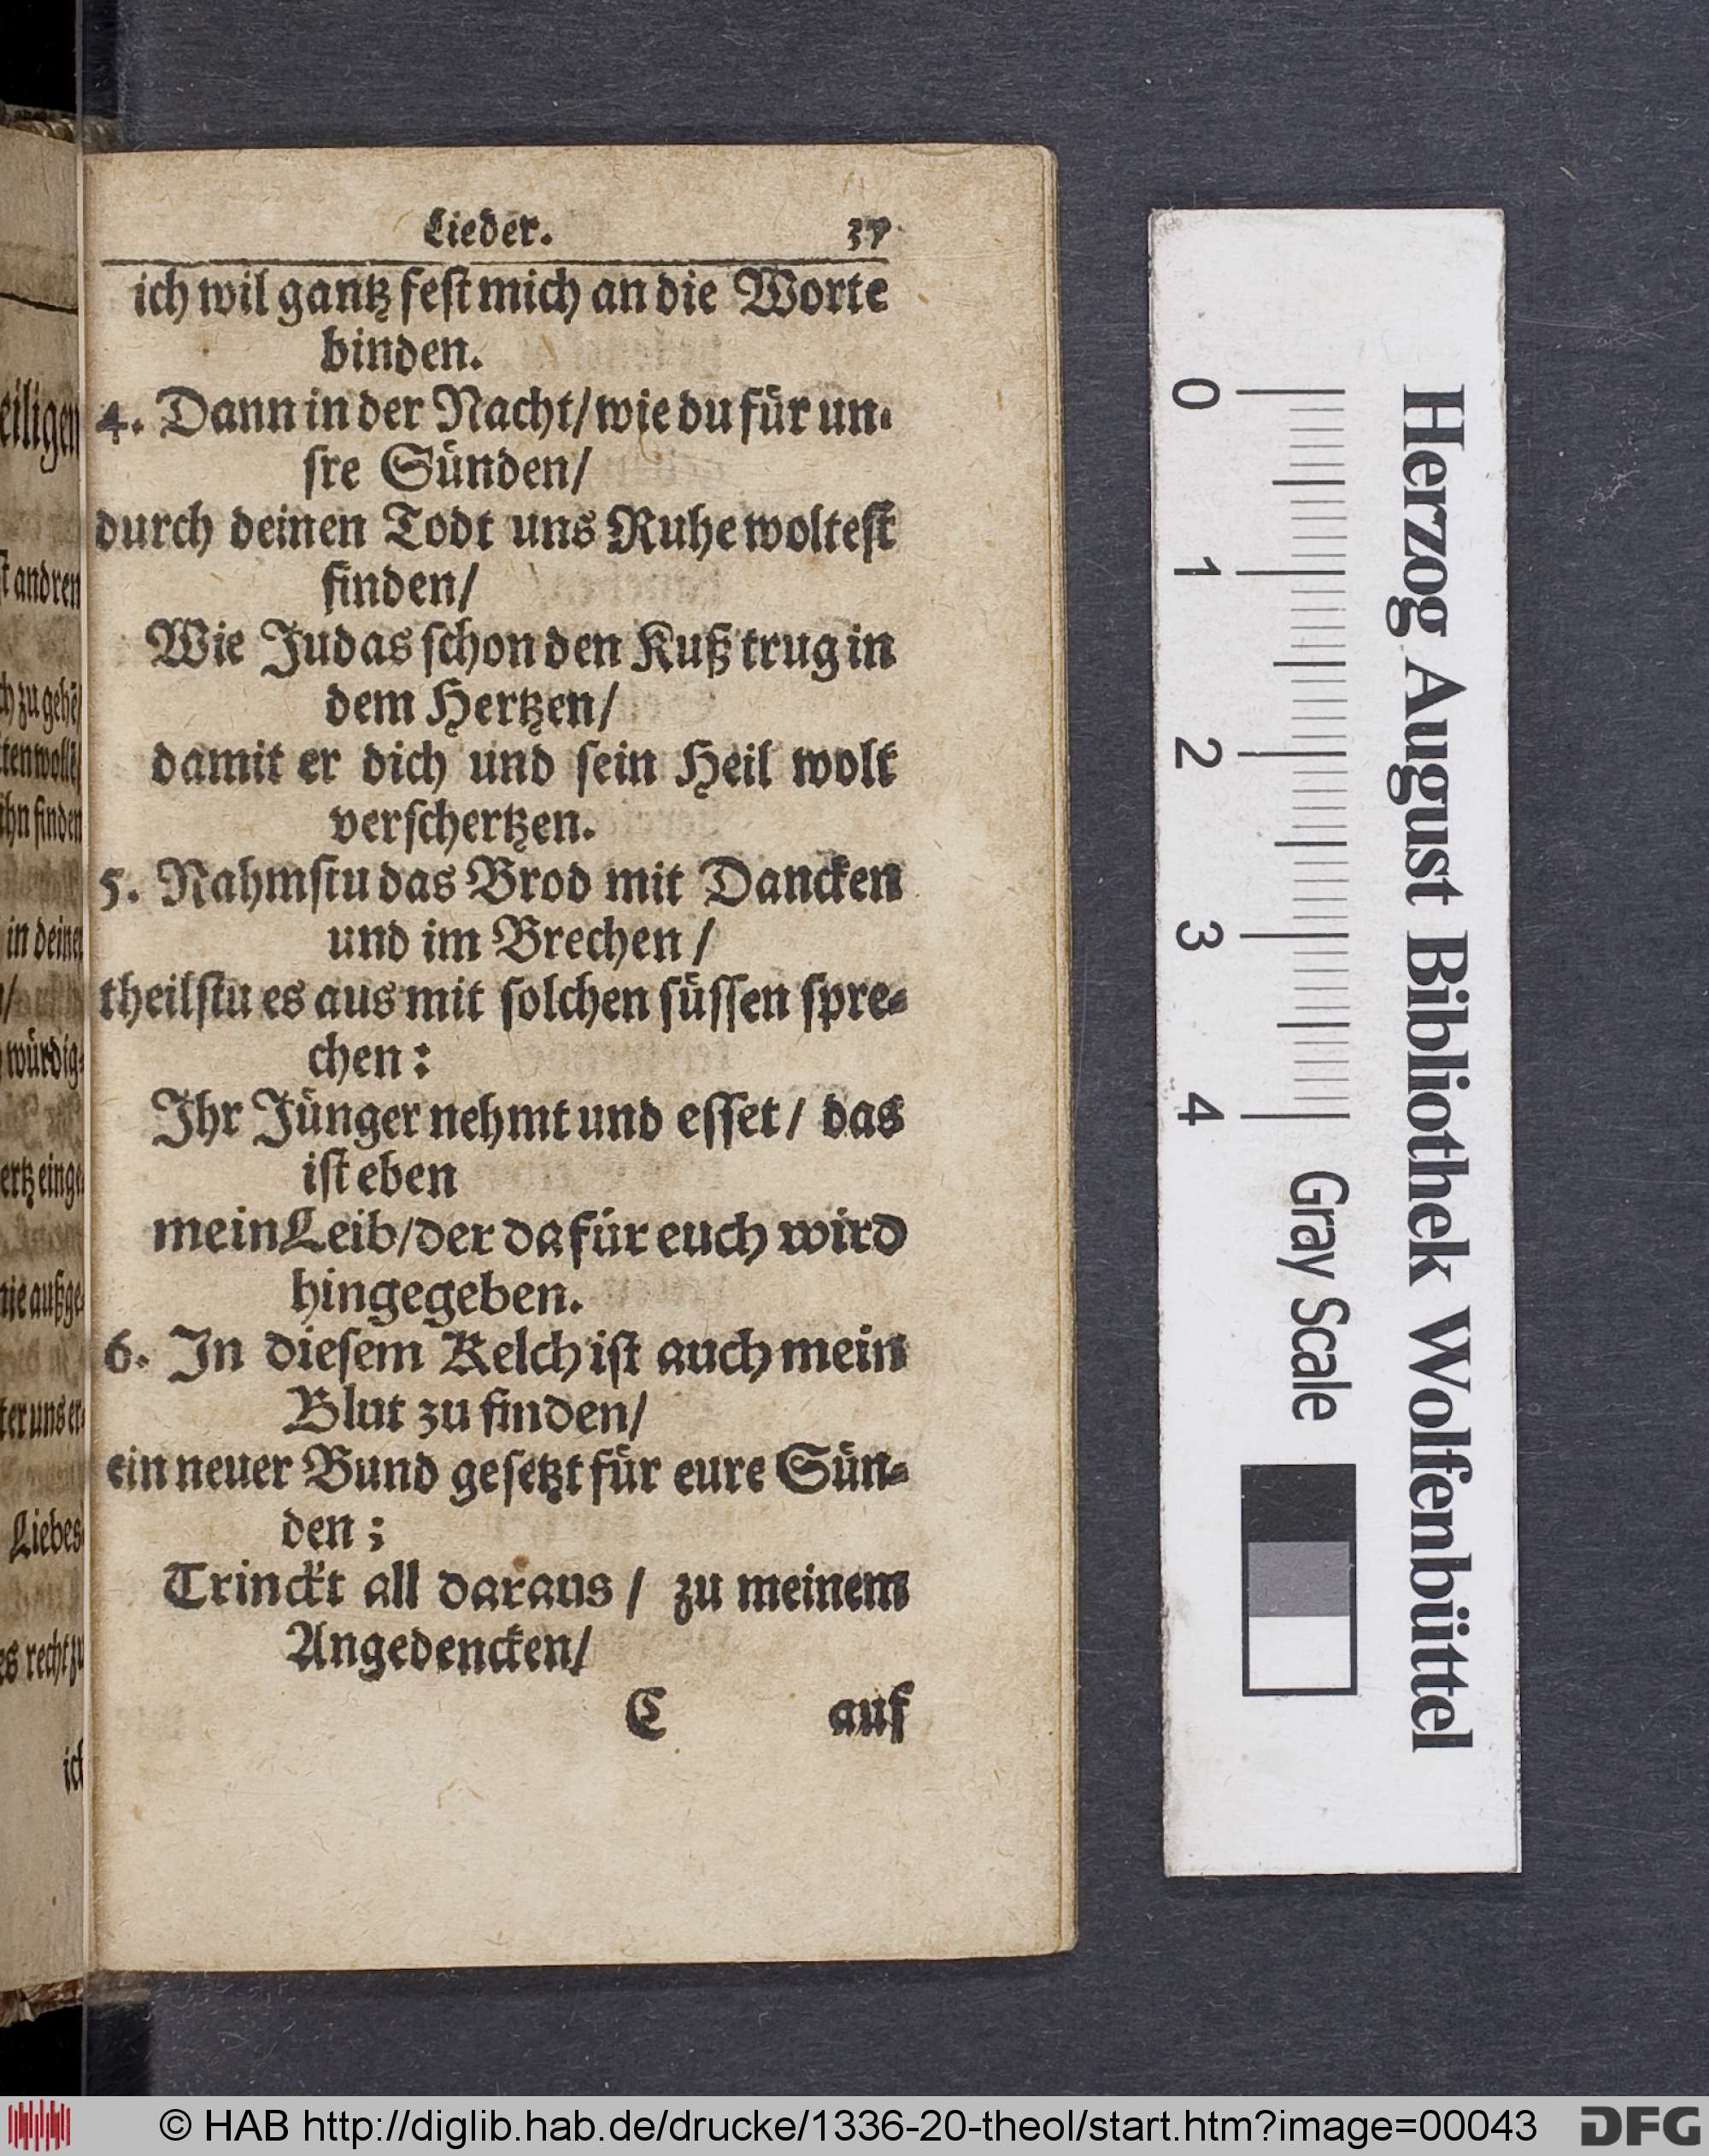 Lieder. 37
ich wil gantz fest mich an die Worte
binden.
4. Dann in der Nacht/ wie du für un-
sre Sünden/
durch deinen Todt uns Ruhe woltest
finden/
Wie Judas schon den Kuß trug in
dem Hertzen/
damit er dich und sein Heil wolt
verschertzen.
5. Nahmstu das Brod mit Dancken
und im Brechen /
theilstu es aus mit solchen süssen spre-
chen:
Ihr Jünger nehmt und esset / das
ist eben
mein Leib/ der da für euch wird
hingegeben.
6. In diesem Kelch ist auch mein
Blut zu finden/
ein neuer Bund gesetzt für eure Sün-
den;
Trinckt all daraus / zu meinem
Angedencken/
C auf
eiligen
andren
zu gehē
ten wollē
ihn finden
in deine
würdig-
ertz einge
nie außge-
ter uns er-
Liebes
es recht zu
ich
0 1 2 3 4 Gray Scale
Herzog August Bibliothek Wolfenbüttel
© HAB http://diglib.hab.de/drucke/1336-20-theol/start.htm?image=00043
DFG